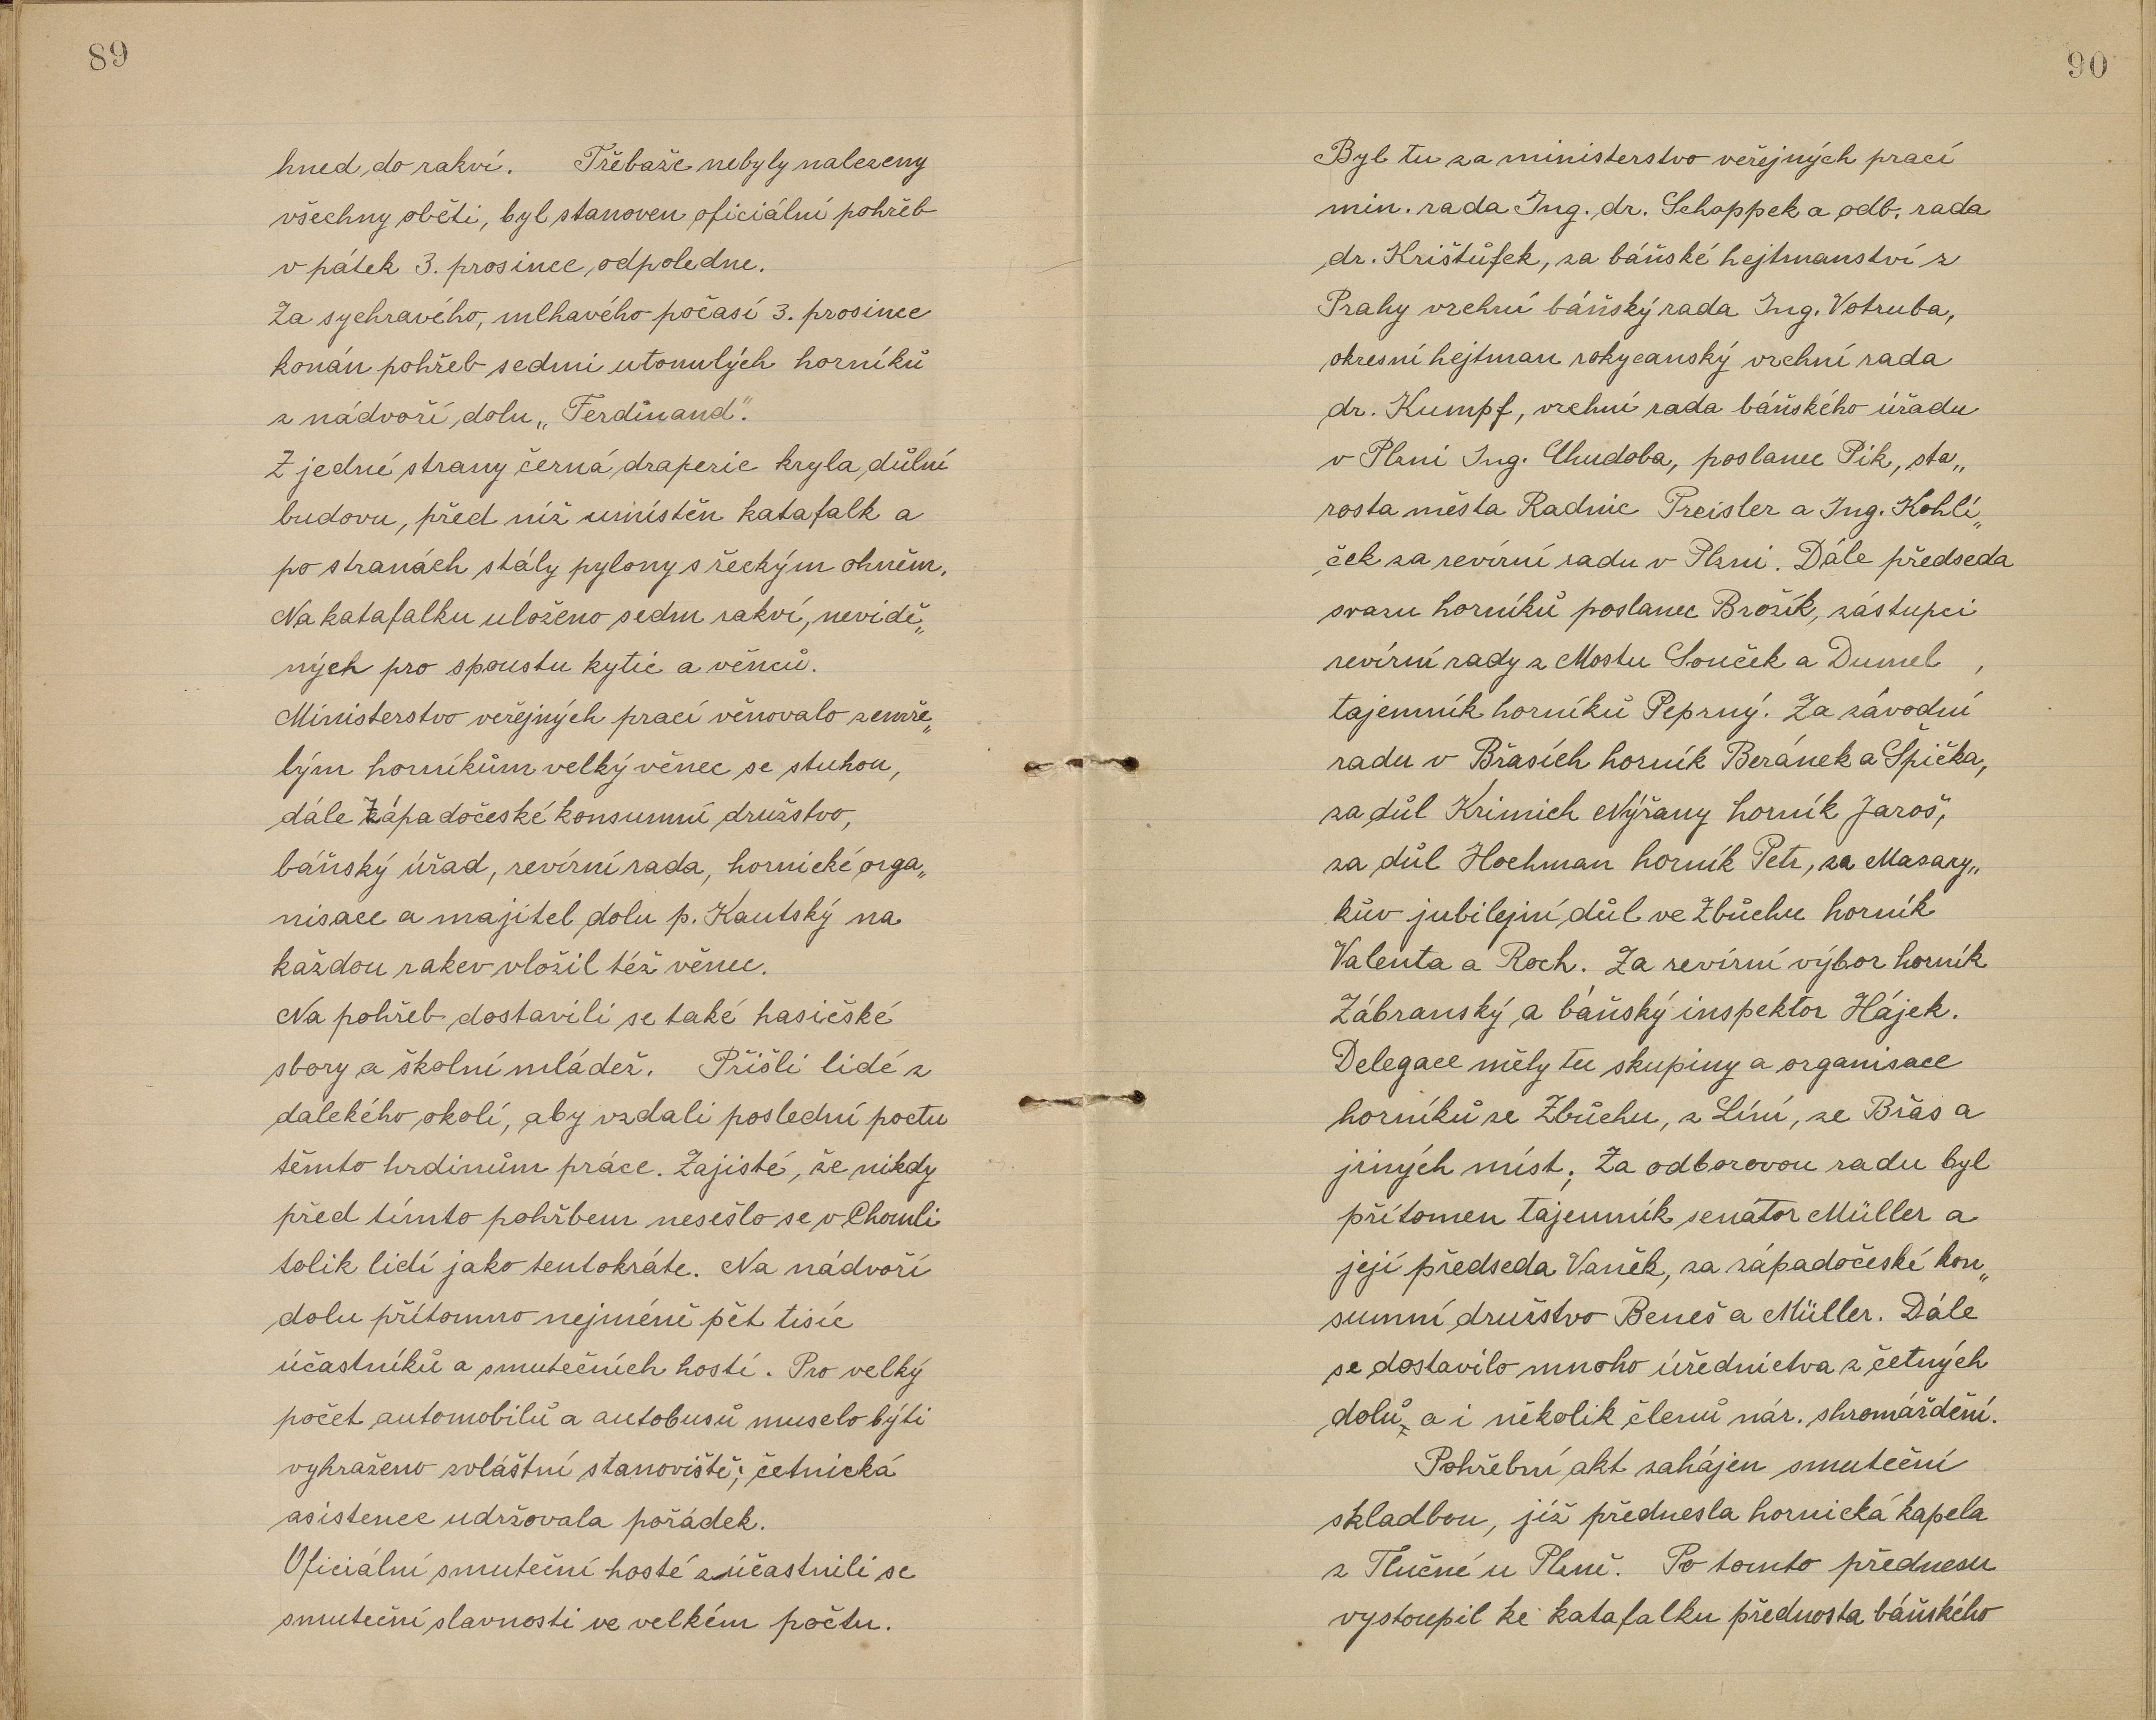 89
hned do rakví. Třebaže nebyly nalezeny
všechny oběti, byl stanoven oficiální pohřeb
v pátek 3. prosince odpoledne.
Za sychravého, mlhavého počasí 3. prosince
konán pohřeb sedmi utonulých horníků
z nádvoří dolu „Ferdinand".
Z jedné strany černá draperie kryla důlní
budovu, před níž umístěn katafalk a
po stranách stály pylony s řeckým ohněm.
Na katafalku uloženo sedm rakví, nevidě„
ných pro spoustu kytic a věnců.
Ministerstvo veřejných prací věnovalo zemře„
lým horníkům velký věnec se stuhou,
dále Západočeské konsumní družstvo,
báňský úřad, revírní rada, hornické orga„
nisace a majitel dolu p. Kautský na
každou rakev vložil též věnec.
Na pohřeb dostavili se také hasičské
sbory a školní mládež. Přišli lidé z
dalekého okolí, aby vzdali poslední poctu
těmto hrdinům práce. Zajisté, že nikdy
před tímto pohřbem nesešlo se v Chomli
tolik lidí jako tentokráte. Na nádvoří
dolu přítomno nejméně pět tisíc
účastníků a smutečních hostí. Pro velký
počet automobilů a autobusů muselo býti
vyhraženo zvláštní stanoviště; četnická
asistence udržovala pořádek.
Oficiální smuteční hosté zúčastnili se
smuteční slavnosti ve velkém počtu.
90
Byl tu za ministerstvo veřejných prací
min. rada Ing. dr. Schoppek a odb. rada
dr. Krištůfek, za báňské hejtmanství z
Prahy vrchní báňský rada Ing. Votruba,
okresní hejtman rokycanský vrchní rada
dr. Kumpf, vrchní rada báňského úřadu
v Plzni Ing. Chudoba, poslanec Pik, sta„
rosta města Radnic Preisler a Ing. Kohlí„
ček za revírní radu v Plzni. Dále předseda
svazu horníků poslanec Brožík, zástupci
revírní rady z Mostu Souček a Dumel ,
tajemník horníků Peprný. Za závodní
radu v Břasích horník Beránek a Špička,
za důl Krimich Nýřany horník Jaroš,
za důl Hochman horník Petr, za Masary„
kův jubilejní důl ve Zbůchu horník
Valenta a Roch. Za revírní výbor horník
Zábranský a báňský inspektor Hájek.
Delegace měly tu skupiny a organisace
horníků ze Zbůchu, z Líní, ze Břas a
jiných míst; Za odborovou radu byl
přítomen tajemník senátor Müller a
její předseda Vaněk, za západočeské kon„
sumní družstvo Beneš a Müller. Dále
se dostavilo mnoho úřednictva z četných
dolů, a i několik členů nár. shromáždění.
Pohřební akt zahájen smuteční
skladbou, jíž přednesla hornická kapela
z Tlučné u Plzně. Po tomto přednesu
vystoupil ke katafalku přednosta báňského